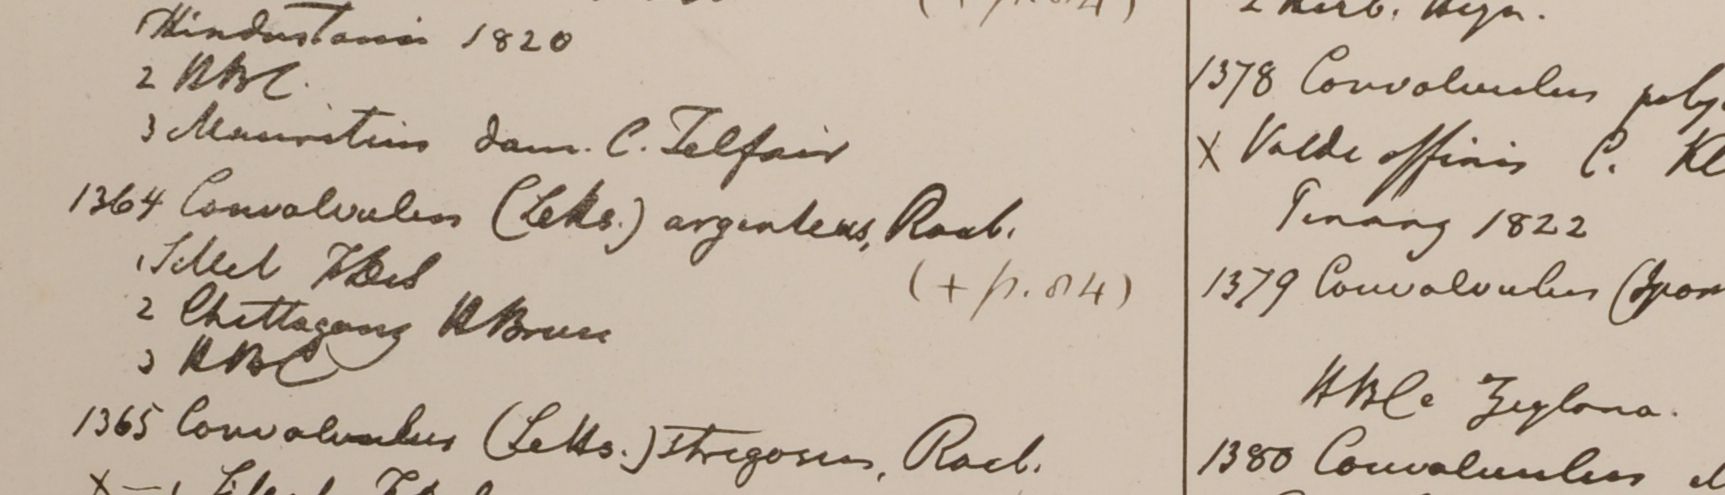 (+ p. 84)
Hindustania 1820
2 HBC.
3 Mauritius dam. C. Telfair
1364 Convolvulus (Letts.) argenteus, Roxb.
1 Sillet
(+ p. 84)
2 Chittagong HBruce
3 HBC
1365 Convolvulus (Letts.) strigosus, Roxb.
X — 1 Sillet
2 Herb. Heyn.
1378 Convolvulus poly
X Valde affinis C.
Penang 1822
1379 Convolvulus (Ipom
HBC e Zeylona.
1380 Convolvulus